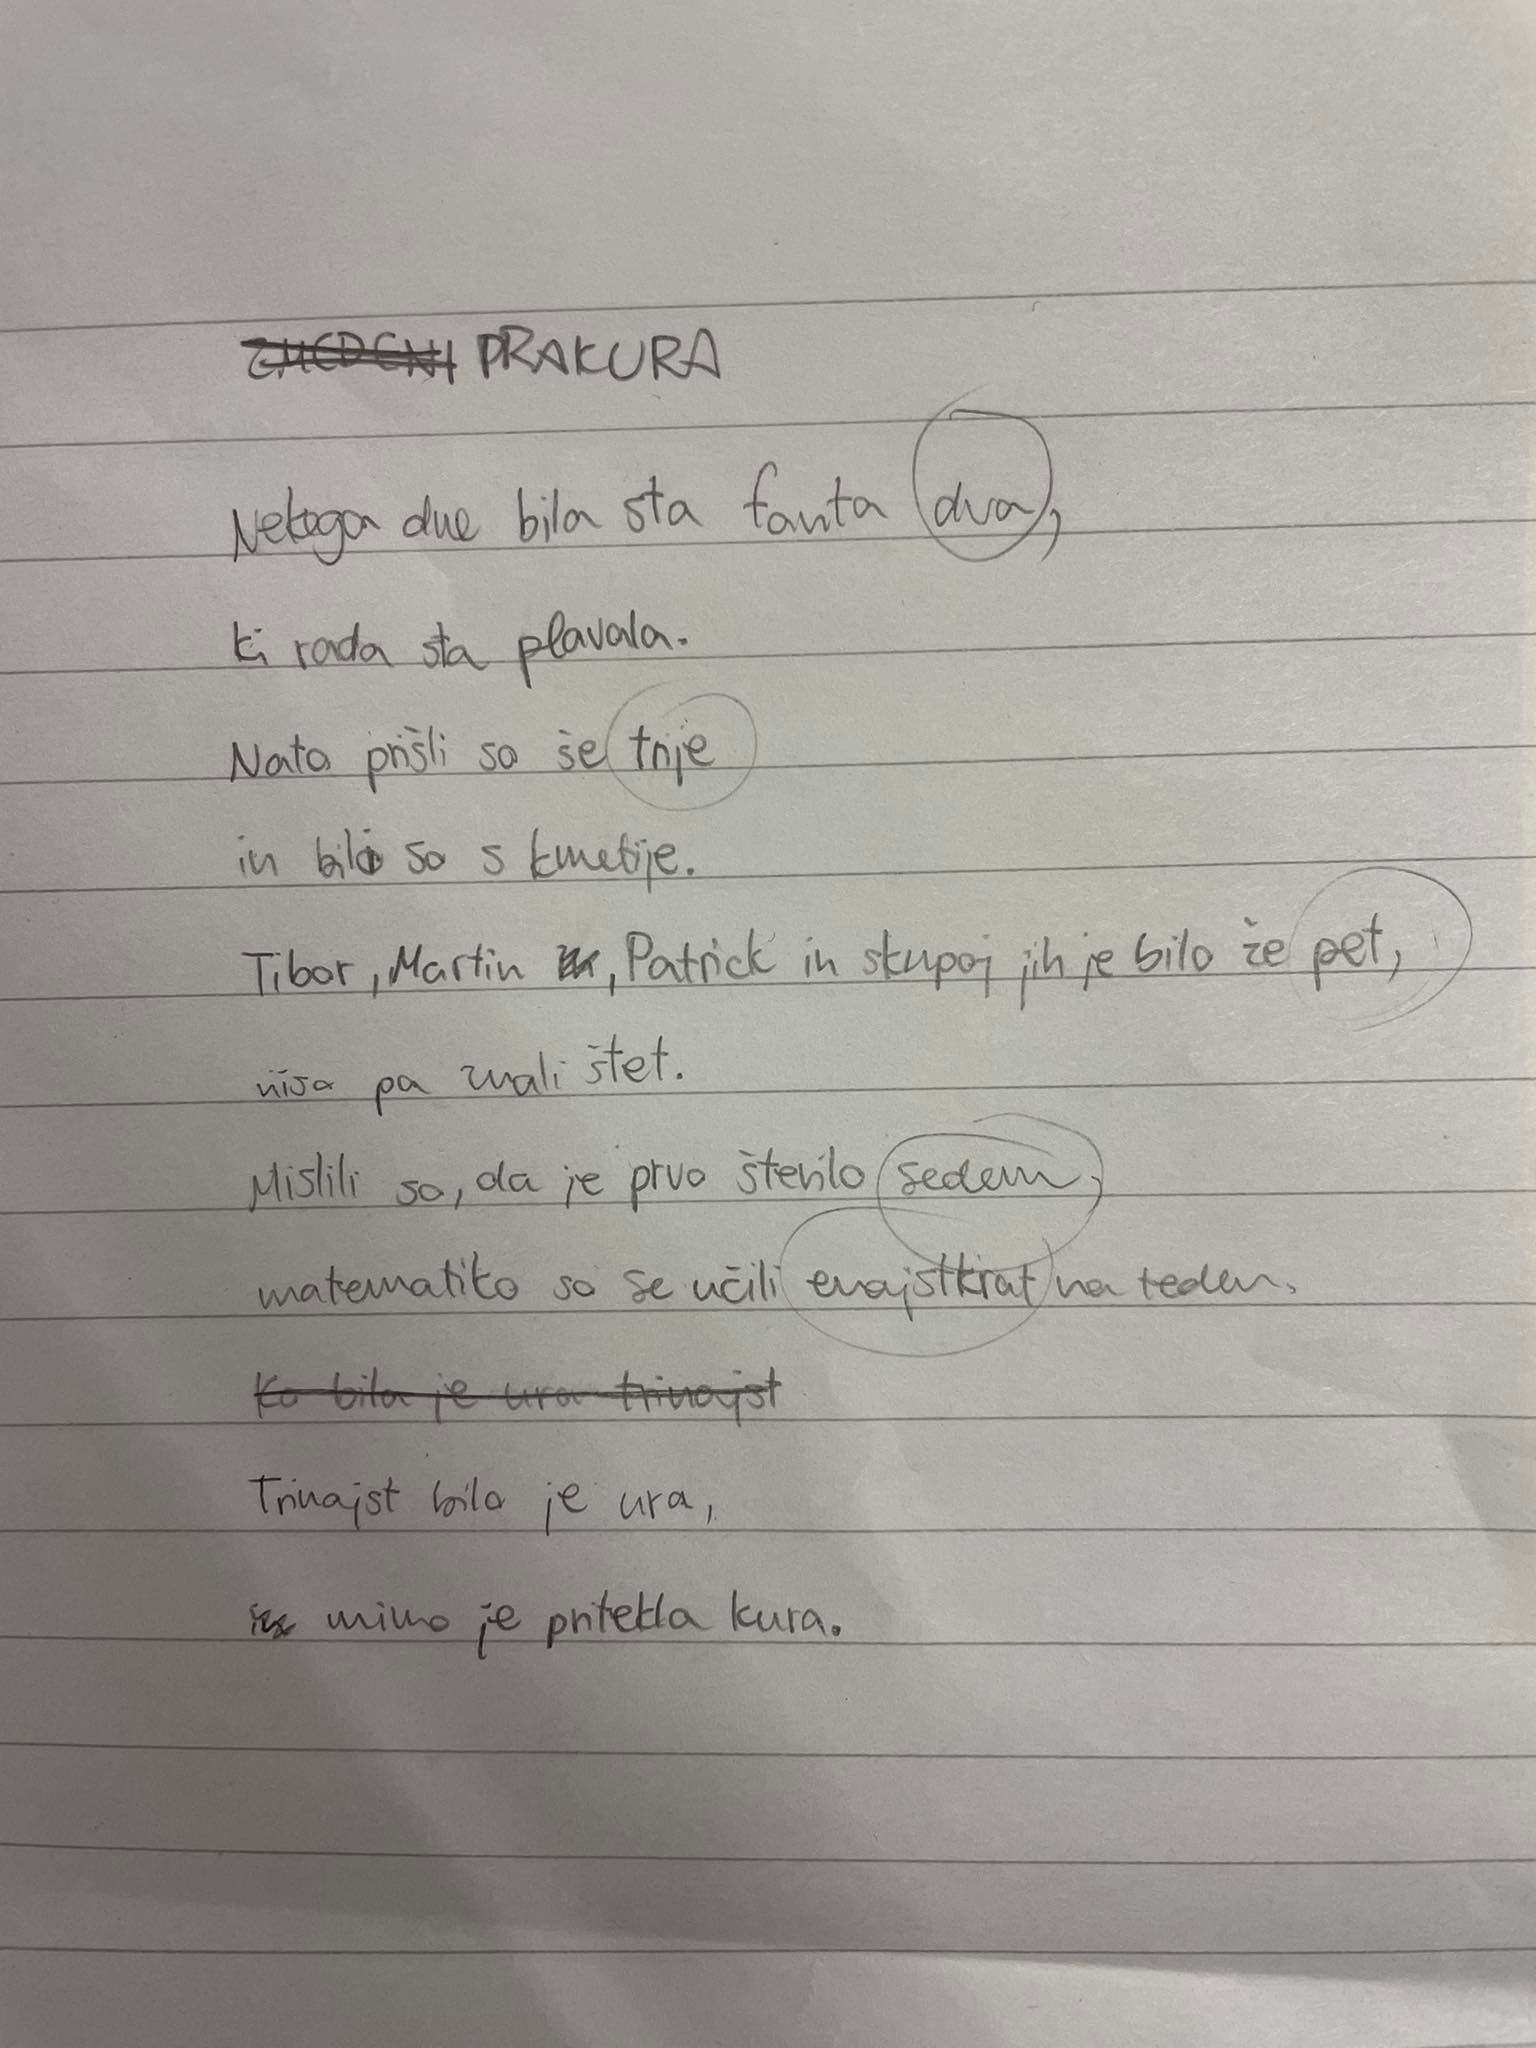 ZMEDENI PRAKURA
Nekega dne bila sta fanta dva,
ki rada sta plavala.
Nato prišli so še trije
in bili so s kmetije.
Tibor, Martin, Patrick in skupaj jih je bilo že pet,
niso pa znali štet.
Mislili so, da je prvo število sedem,
matematiko so se učili enajstkrat na teden.
Ko bila je ura trinajst
Trinajst bila je ura,
mimo je pritekla kura.